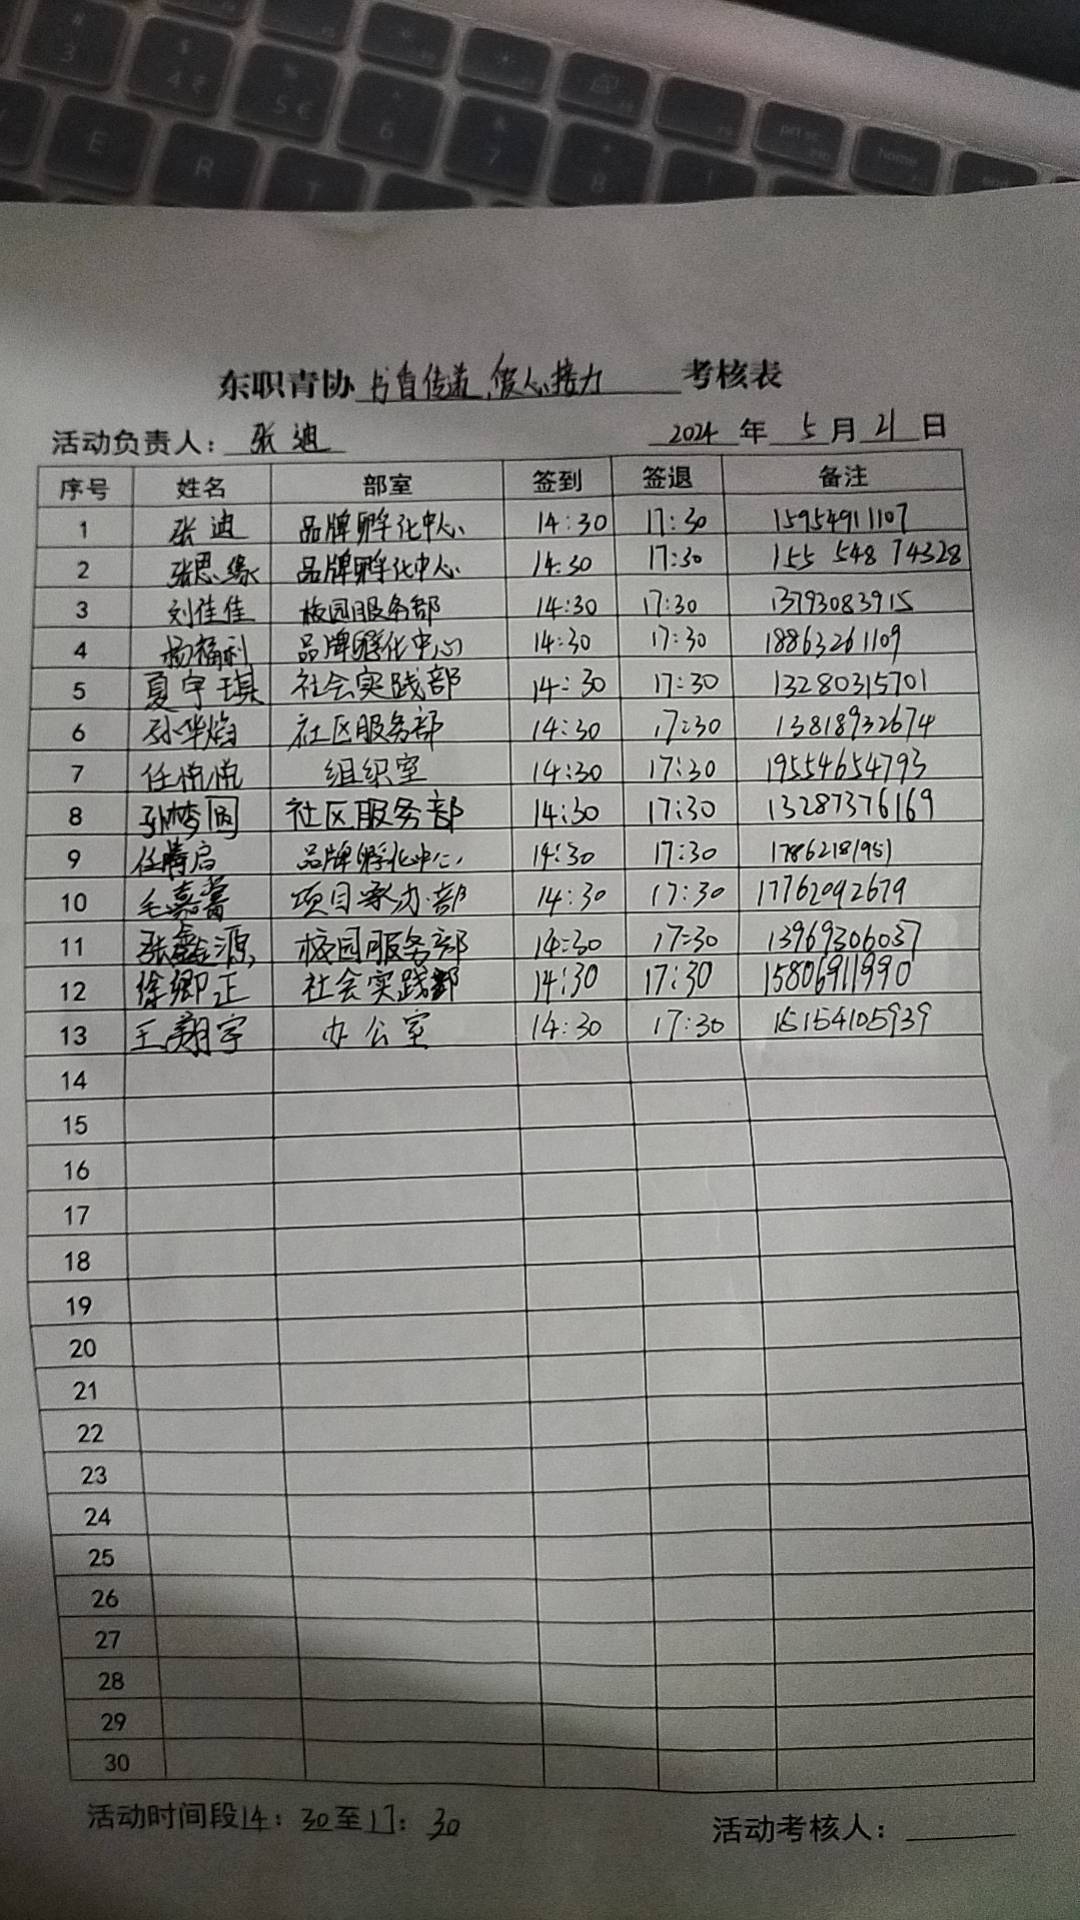 东职青协 书香传递,爱心接力 考核表
活动负责人: 张迪 2024 年 5 月 21 日
序号 姓名 部室 签到 签退 备注
1 张迪 品牌孵化中心 14:30 17:30 15954911107
2 张思缘 品牌孵化中心 14:30 17:30 155 548 74328
3 刘佳佳 校园服务部 14:30 17:30 13793083915
4 杨福利 品牌孵化中心 14:30 17:30 18863261109
5 夏宇琪 社会实践部 14:30 17:30 13280315701
6 孙华焰 社区服务部 14:30 17:30 13818932674
7 任楠楠 组织室 14:30 17:30 19554654793
8 孙梦圆 社区服务部 14:30 17:30 13287376169
9 任 启 品牌孵化中心 14:30 17:30 17862181951
10 毛嘉 项目承办部 14:30 17:30 17762092679
11 张鑫源 校园服务部 14:30 17:30 13969306037
12 徐卿正 社会实践部 14:30 17:30 15806911990
13 王翔宇 办公室 14:30 17:30 15154105939
14
15
16
17
18
19
20
21
22
23
24
25
26
27
28
29
30
活动时间段14:30至17:30 活动考核人: